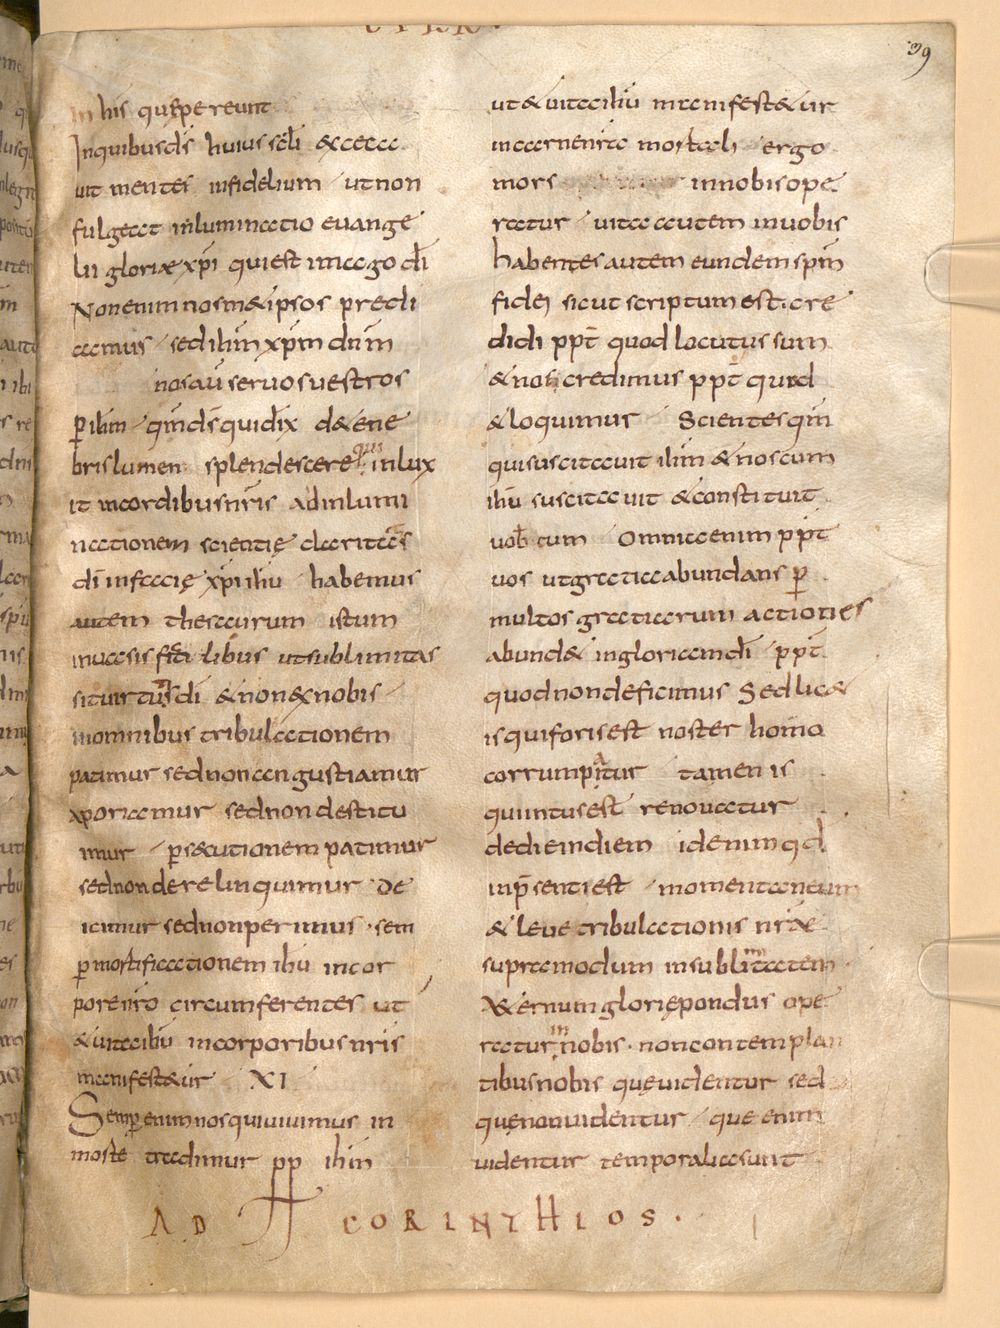 39
In his que pereunt
Inquibusds huius sc̄li excaeca
uit mentes infidelium ut non
fulgeat inluminatio euange
lii gloriae xp̄i qui est imago dī
Non enim nosmetipsos predi
camus sed ih̄m xp̄m dn̄m
nos aū seruos uestros
ꝑ ih̄m qm̄ d̄s qui dix̄ de tene
bris lumen splendescere qui inlux
it in cordibus nr̄is ad inlumi
nationem scientię claritatis
dī in facię xp̄i ih̄u habemus
autem thesaurum istum
in uasis fictilibus ut sublimitas
sit uirtutis dī & non ex nobis
in omnibus tribulationem
patimur sed non angustiamur
aporiamur sed non destitu
imur ꝑsecutionem patimur
sed non derelinquimur de
icimur sed non perimus · sem
ꝑ mortificationem ih̄u in cor
pore nr̄o circumferentes ut
& uita ih̄u in corporibus nr̄is
manifest&ur XI
Semꝑ enim nos qui uiuimus in
mortē tradimur ꝓp ih̄m
ut & uita ih̄u manifest&ur
in carne nr̄a mortali ergo
mors in nobis ope
ratur uita autem in uobis
habentes autem eundem sp̄m
fidei sicut scriptum est · cre
didi ꝓpt̄ quod locutus sum
& nos credimus ꝓpt̄ quod
& loquimur Scientes qm̄
qui suscitauit ih̄m & nos cum
ih̄u suscitauit & constituit
uob cum Omnia enim ꝓpt̄
uos ut gratia abundans ꝑ
multos gratiarum actiones
abund& in gloriam dī ꝓpt̄
quod non deficimus Sed lic&
is qui foris est noster homo
corrumpitur tamen is
qui intus est renouatur
de die in diem id enim qd
in p̄senti est momentaneum
& leue tribulationis nr̄ae
supra modum in sublimitatem
&ernum glorię pondus ope
ratur in nobis · non contemplan
tibus nobis que uidentur sed
que non uidentur que enim
uidentur temporalia sunt
AD CORINTHIOS ·